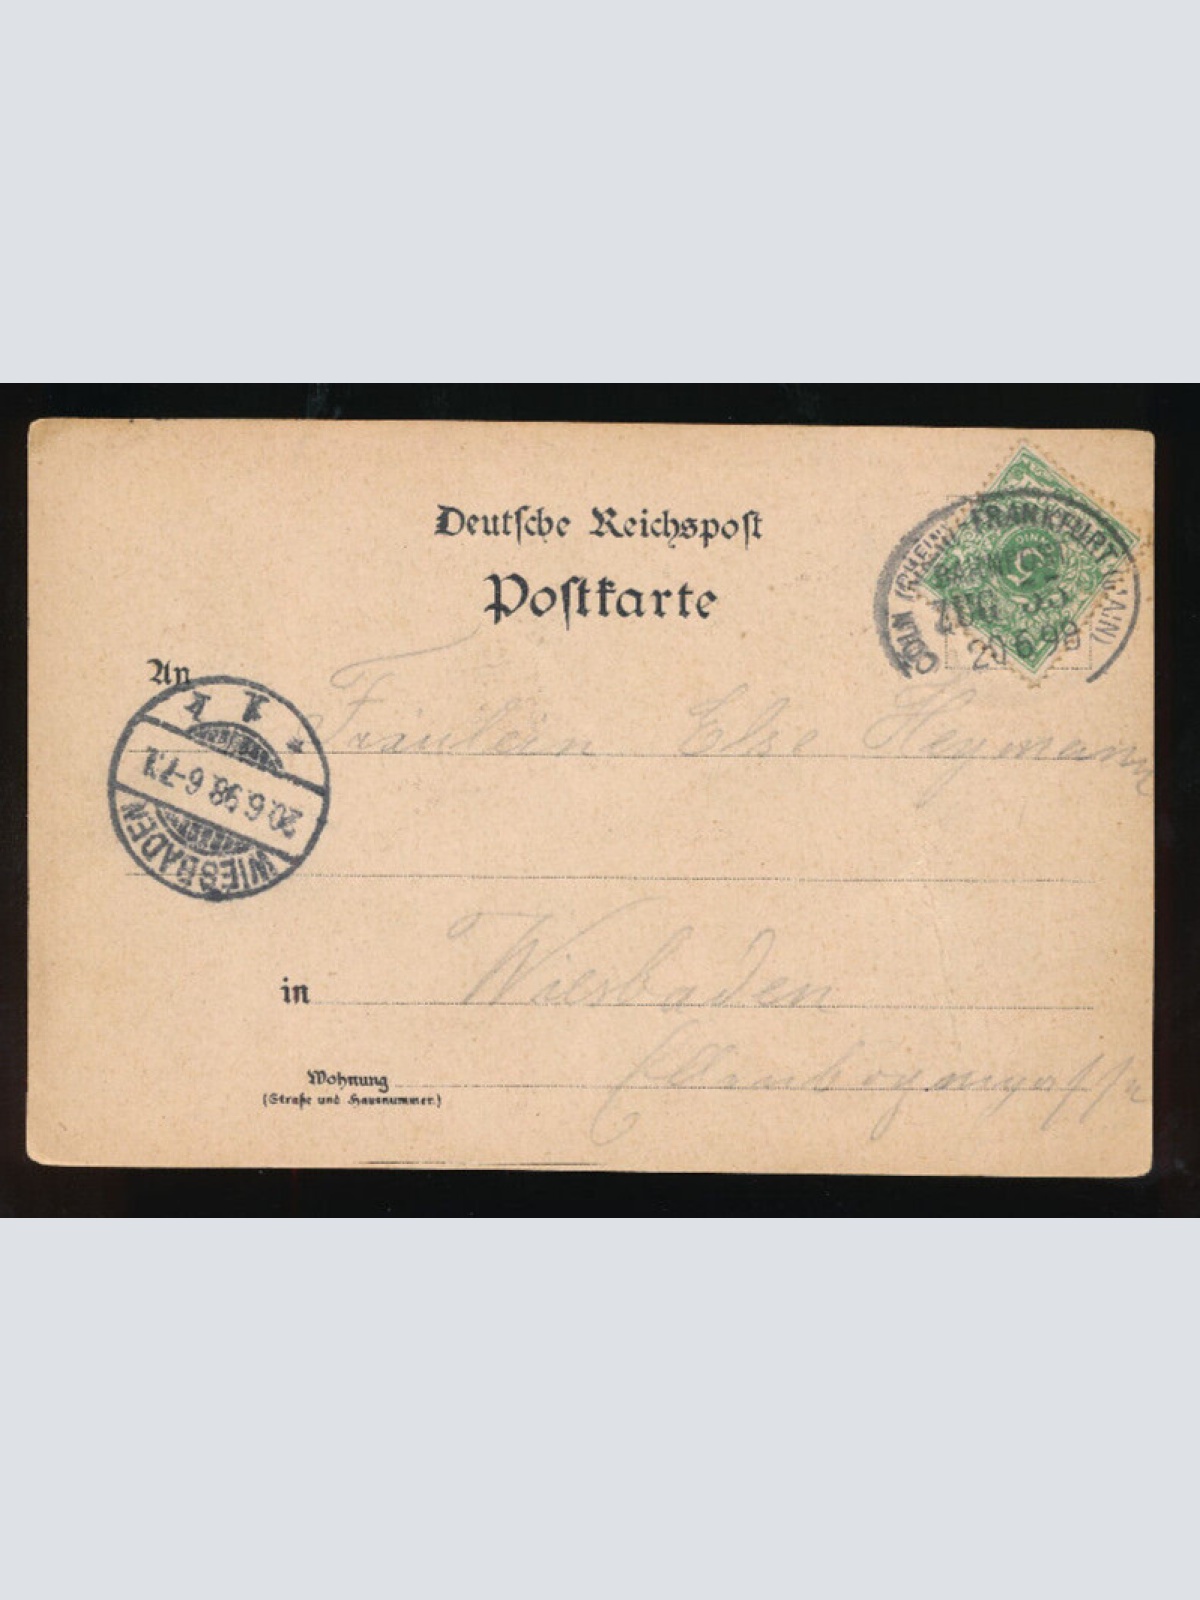 Deutsche Reichspost
Postkarte
CÖLN (RHEIN) - FRANKFURT (MAIN)
BAHNPOST
ZUG 35
20 6 98
An
Fräulein Else Heymann
WIESBADEN
20.6.98.6-7N.
1 k
*
in Wiesbaden
Wohnung Ellenbogengasse
(Straße und Hausnummer.)